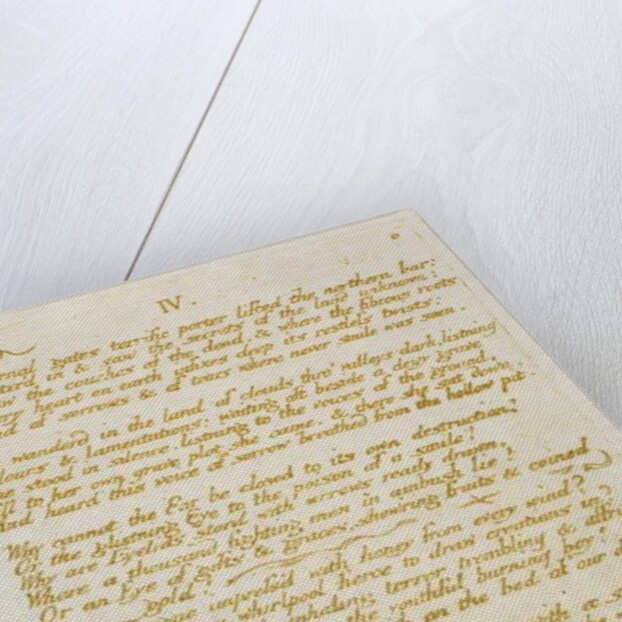 IV.
nal gates terrific porter lifted the northern bar:
terd in & saw the secrets of the land unknown;
the couches of the dead, & where the fibrous roots
ery heart on earth infixes deep its restless twists:
d of sorrows & of tears where never smile was seen.
wanderd in the land of clouds thro' valleys dark, listning
lours & lamentations: waiting oft beside a dewy grave
e stood in silence, listning to the voices of the ground,
ll to her own grave plot she came, & there she sat down,
nd heard this voice of sorrow breathed from the hollow pit.
Why cannot the Ear be closed to its own destruction?
Or the glistning Eye to the poison of a smile!
Why are Eyelids stord with arrows ready drawn,
Where a thousand fighting men in ambush lie?
Or an Eye of gifts & graces, showring fruits & coined
gold!
impress'd with honey from every wind?
whirlpool fierce to draw creations in?
inhaling terror, trembling & affri
the youthful burning boy
on the bed of our d
with a s